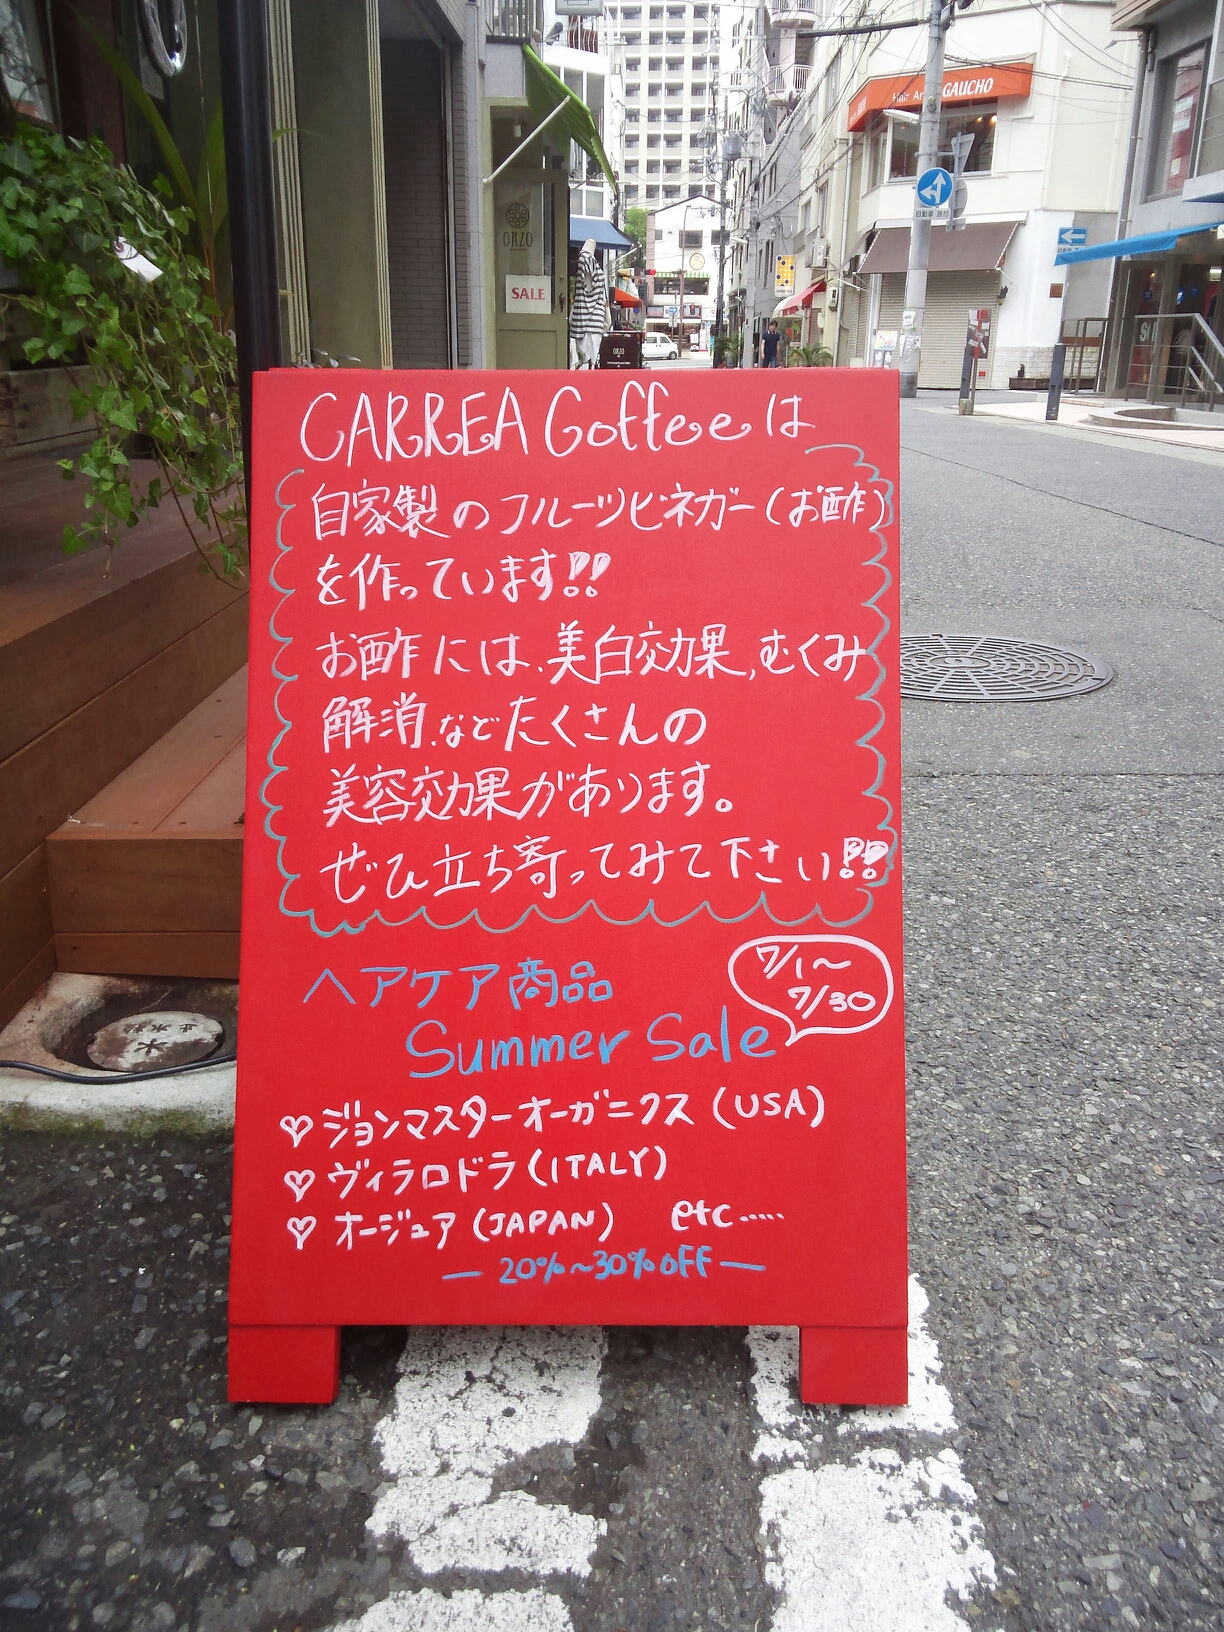 Hair Ar GAUCHO
自動車 原付
ORZO
SALE
ORZO
CARREA Goffeeは
自家製のフルーツビネガー(お酢)
を作っています!!
お酢には、美白効果、むくみ
解消、などたくさんの
美容効果があります。
ぜひ立ち寄ってみて下さい!!
7/1〜
7/30
ヘアケア商品
Summer Sale
♡ジョンマスターオーガニクス(USA)
♡ヴィラロドラ(ITALY)
♡オージュア(JAPAN) etc.....
— 20%~30%OFF —